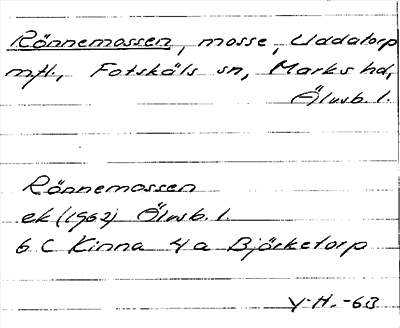 Rönnemossen, mosse, Uddatorp
mfl., Fotskäls sn, Marks hd,
Älvsb. l.
Rönnemossen
ek (1962) Älvsb. l.
6 C Kinna 4 a Björketorp
Y-H. -63